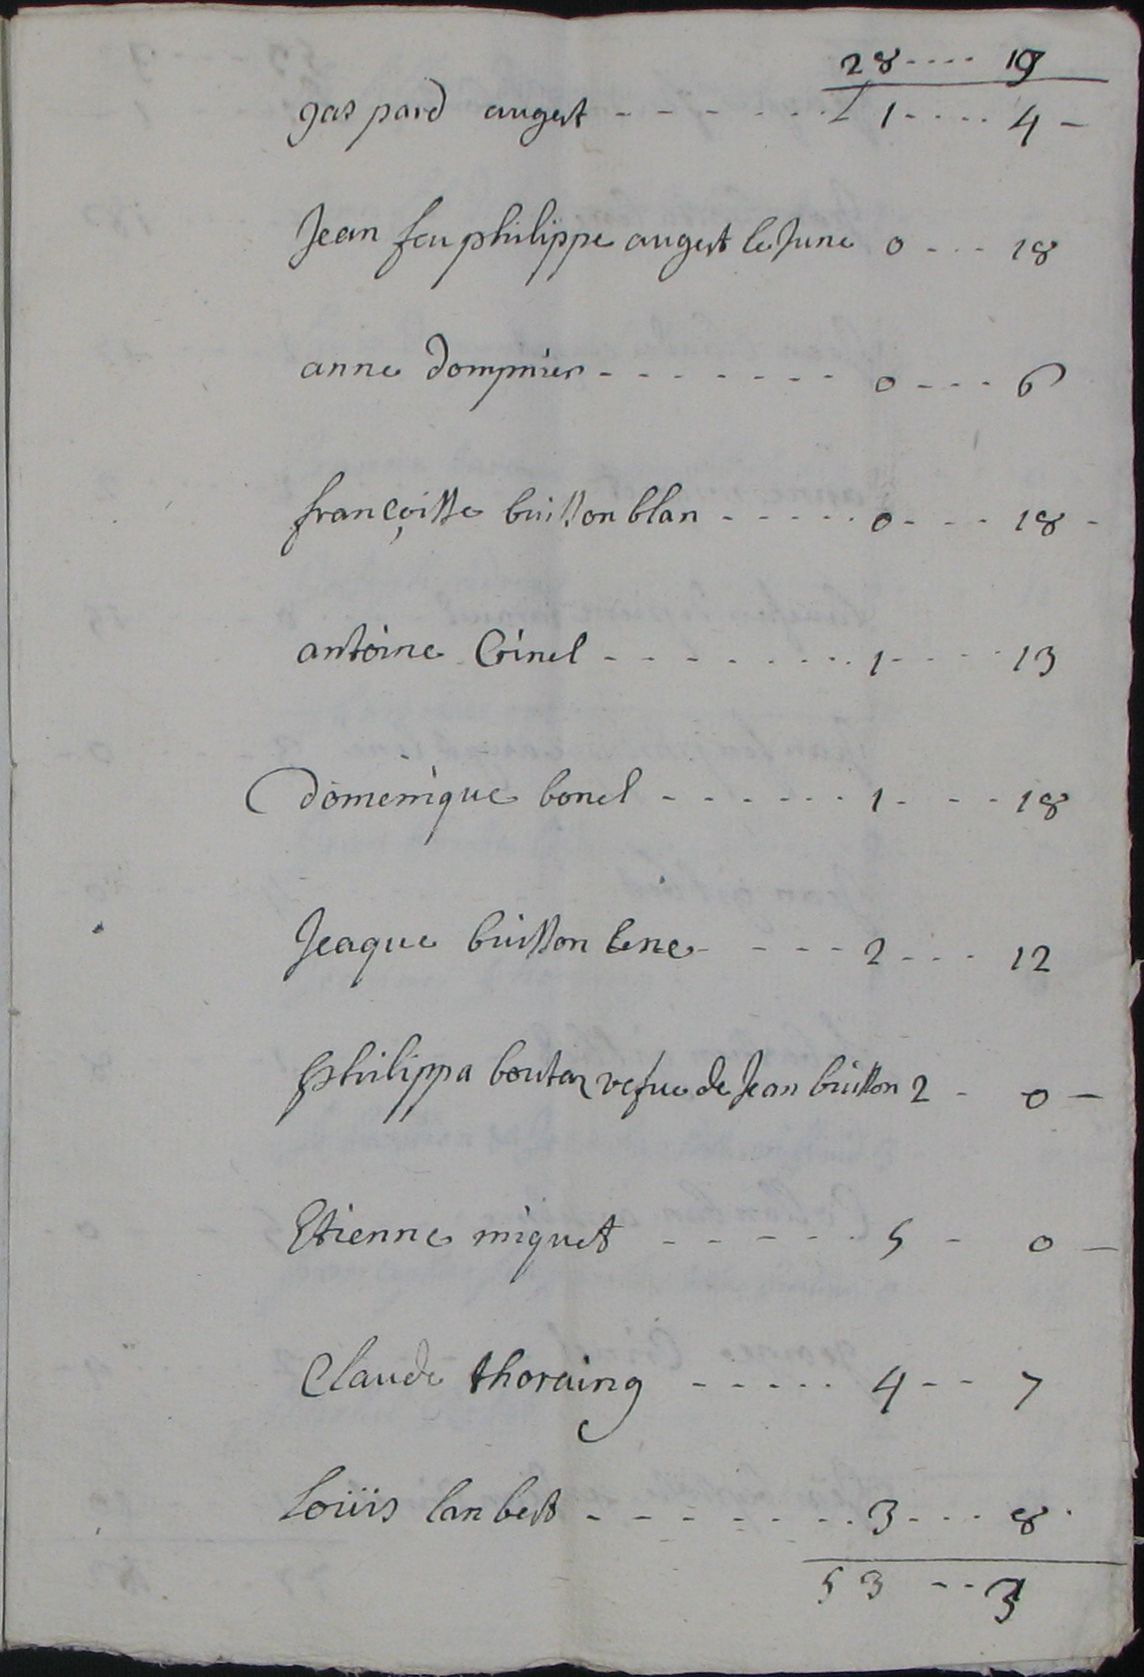 28 .... 19
gaspard augert - - - - - - L 1 - - - - 4 -
Jean feu philippe augert le June 0 - - - 18
anne dompnier - - - - - - - 0 - - - 6
françoisse buisson blan - - - - - 0 - - - - 18 -
antoine Crinel - - - - - - - - 1 - - - - 13
domenique bonel - - - - - - 1 - - - - 18
Jeaque buisson lene - - - - 2 - - - 12
philippa boutaz vefue de Jean buisson 2 - 0 -
Etienne miquet - - - - - - 5 - 0 -
Claude thoraing - - - - - 4 - - 7
Loüis lanbert - - - - - - - - 3 - - - - 8
53 - - - 3